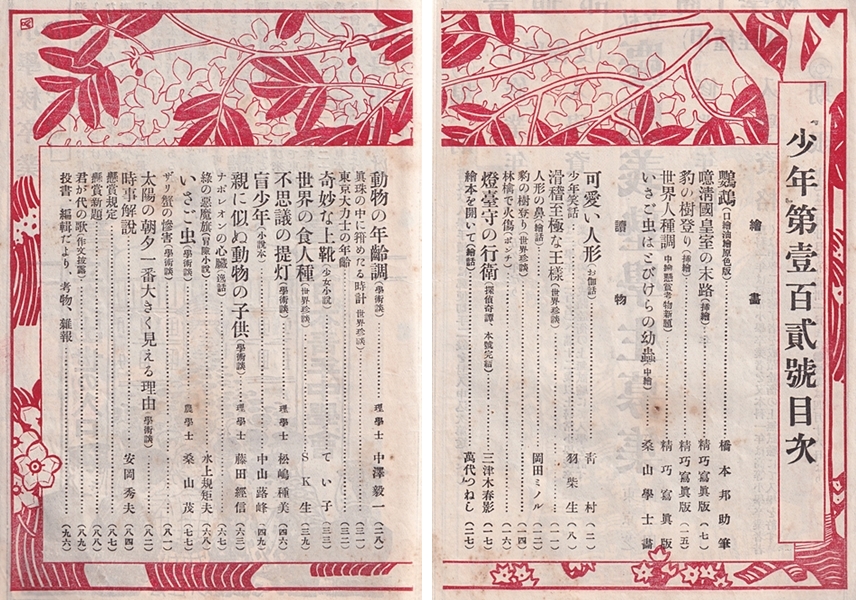 少年第壹百貳號目次
繪畫
鸚鵡(口繪油繪原色版)……橋本邦助筆
噫淸國皇室の末路(挿繪)……精巧寫眞版(七)
豹の樹登り(挿繪)……精巧寫眞版(一五)
世界人種調 中繪懸賞考物新題……精巧寫眞版
いさご虫はとびけらの幼蟲(中繪)……桑山學士畫
讀物
可愛い人形(お伽話)……靑村(二)
少年笑話……羽柴生(八)
滑稽至極な王樣(世界珍談)……(一一)
人形の鼻(繪話)……岡田ミノル(一二)
豹の樹登り(世界珍談)……(一四)
林檎で火傷(ポンチ)……(一六)
燈臺守の行衛(探偵奇譚、本號完結)……三津木春影(一七)
繪本を開いて(繪話)……萬代つねし(二七)
動物の年齡調(學術談)……理學士 中澤毅一(二八)
眞珠の中に箝めたる時計(世界珍談)……(三一)
東京大力士の年齡……(三二)
奇妙な上靴(少女小說)……てい子(三三)
世界の食人種(世界珍談)……SK生(三九)
不思議の提灯(學術談)……理學士 松嶋種美(四六)
盲少年(小說本)……中山蕗峰(四九)
親に似ぬ動物の子供(學術談)……理學士 藤田經信(六三)
ナポレオンの心臟(逸話)……(六七)
綠の惡魔旗(冒險小說)……水上規矩夫(六八)
いさご虫(學術談)……農學士 桑山茂(七七)
ザリ蟹の慘害(學術談)……(八一)
太陽の朝夕一番大きく見える理由(學術談)……(八二)
時事解說……安岡秀夫(八四)
懸賞規定……(八七)
懸賞新題……(八八)
君が代の歌(作文披露)……(八九)
投書、編輯だより、考物、雜報……(九六)